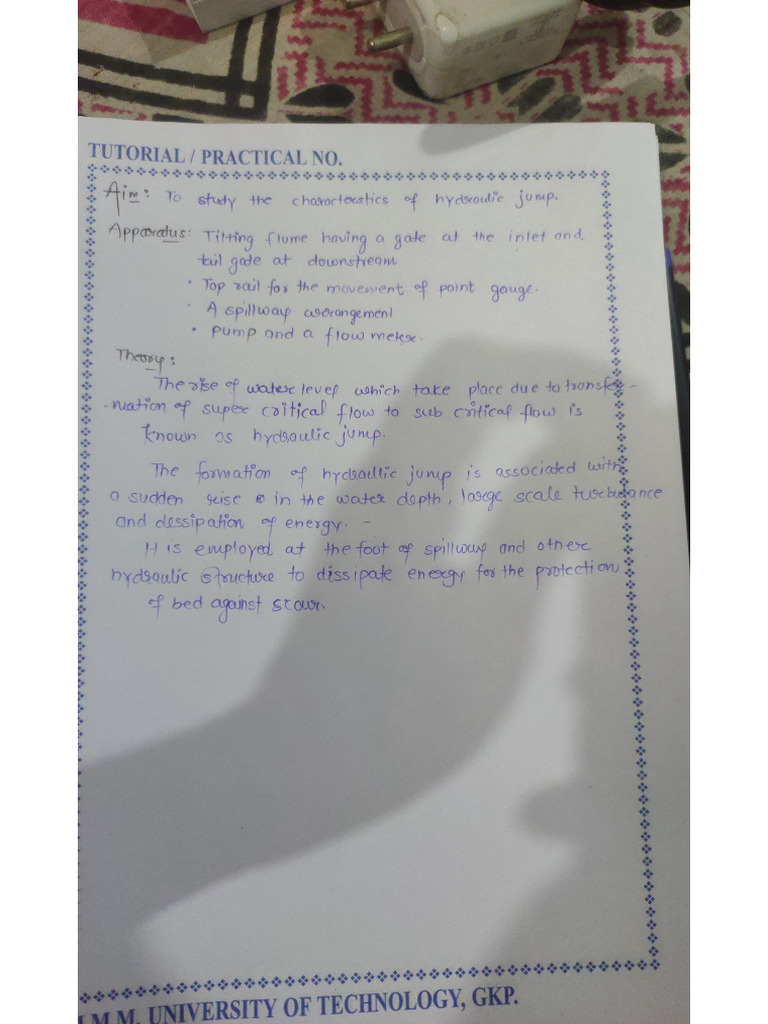 TUTORIAL / PRACTICAL NO.
Aim: To study the characterstics of hydraulic jump.
Apparatus: Tilting flume having a gate at the inlet and
tail gate at downstream
• Top rail for the movement of point gauge.
• A spillway arrangement
• pump and a flow meter.
Theory:
The rise of water level which take place due to transfer-
-mation of super critical flow to sub critical flow is
known as hydraulic jump.
The formation of hydraulic jump is associated with
a sudden rise in the water depth, large scale turbulance
and dessipation of energy. -
It is employed at the foot of spillway and other
hydraulic structure to dissipate energy for the protection
of bed against scour.
M.M. UNIVERSITY OF TECHNOLOGY, GKP.